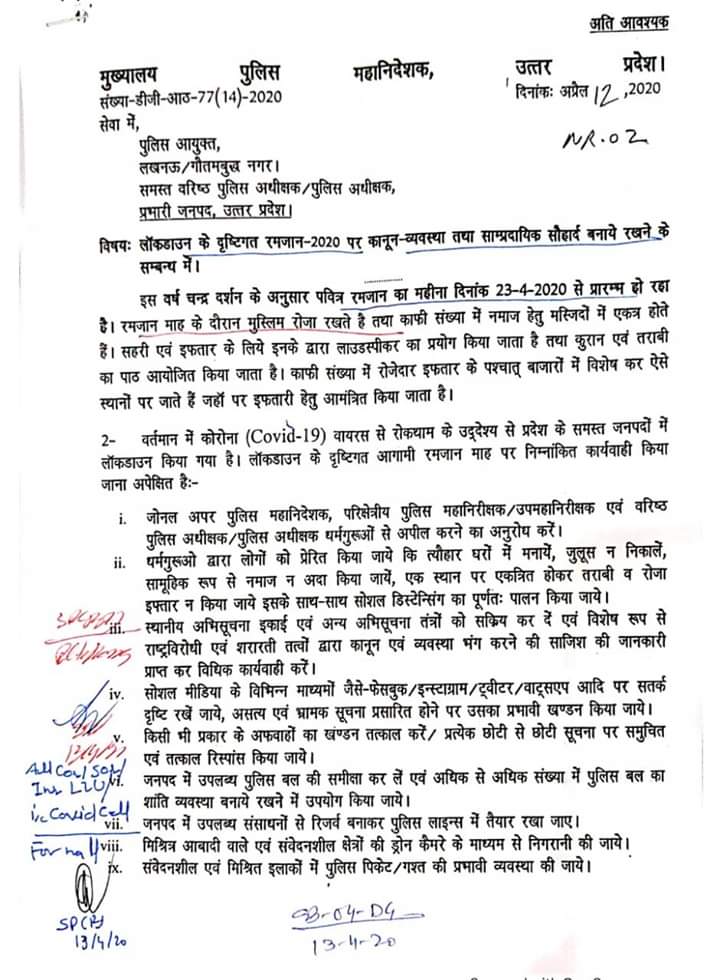 अति आवश्यक
मुख्यालय पुलिस महानिदेशक, उत्तर प्रदेश।
संख्या-डीजी-आठ-77(14)-2020 दिनांकः अप्रैल 12 ,2020
सेवा में,
NR.02
पुलिस आयुक्त,
लखनऊ/गौतमबुद्ध नगर।
समस्त वरिष्ठ पुलिस अधीक्षक/पुलिस अधीक्षक,
प्रभारी जनपद, उत्तर प्रदेश।
विषयः लॉकडाउन के दृष्टिगत रमजान-2020 पर कानून-व्यवस्था तथा साम्प्रदायिक सौहार्द बनाये रखने के
सम्बन्ध में।
इस वर्ष चन्द्र दर्शन के अनुसार पवित्र रमजान का महीना दिनांक 23-4-2020 से प्रारम्भ हो रहा
है। रमजान माह के दौरान मुस्लिम रोजा रखते है तथा काफी संख्या में नमाज हेतु मस्जिदों में एकत्र होते
हैं। सहरी एवं इफतार के लिये इनके द्वारा लाउडस्पीकर का प्रयोग किया जाता है तथा कुरान एवं तराबी
का पाठ आयोजित किया जाता है। काफी संख्या में रोजेदार इफतार के पश्चात् बाजारों में विशेष कर ऐसे
स्थानों पर जाते हैं जहॉं पर इफतारी हेतु आमंत्रित किया जाता है।
2- वर्तमान में कोरोना (Covid-19) वायरस से रोकथाम के उद्देश्य से प्रदेश के समस्त जनपदों में
लॉकडाउन किया गया है। लॉकडाउन के दृष्टिगत आगामी रमजान माह पर निम्नांकित कार्यवाही किया
जाना अपेक्षित हैः-
i. जोनल अपर पुलिस महानिदेशक, परिक्षेत्रीय पुलिस महानिरीक्षक/उपमहानिरीक्षक एवं वरिष्ठ
पुलिस अधीक्षक/पुलिस अधीक्षक धर्मगुरूओं से अपील करने का अनुरोध करें।
ii. धर्मगुरूओ द्वारा लोगों को प्रेरित किया जाये कि त्यौहार घरों में मनायें, जुलूस न निकालें,
सामूहिक रूप से नमाज न अदा किया जायें, एक स्थान पर एकत्रित होकर तराबी व रोजा
इफ्तार न किया जाये इसके साथ-साथ सोशल डिस्टेन्सिंग का पूर्णतः पालन किया जाये।
iii. स्थानीय अभिसूचना इकाई एवं अन्य अभिसूचना तंत्रों को सक्रिय कर दें एवं विशेष रूप से
राष्ट्रविरोधी एवं शरारती तत्वों द्वारा कानून एवं व्यवस्था भंग करने की साजिश की जानकारी
प्राप्त कर विधिक कार्यवाही करें।
iv. सोशल मीडिया के विभिन्न माध्यमों जैसे-फेसबुक/इन्स्टाग्राम/ट्वीटर/वाट्सएप आदि पर सतर्क
दृष्टि रखें जाये, असत्य एवं भ्रामक सूचना प्रसारित होने पर उसका प्रभावी खण्डन किया जाये।
v. किसी भी प्रकार के अफवाहों का खण्डन तत्काल करें/ प्रत्येक छोटी से छोटी सूचना पर समुचित
एवं तत्काल रिस्पांस किया जाये।
vi. जनपद में उपलब्ध पुलिस बल की समीक्षा कर लें एवं अधिक से अधिक संख्या में पुलिस बल का
शांति व्यवस्था बनाये रखने में उपयोग किया जाये।
vii. जनपद में उपलब्ध संसाधनों से रिजर्व बनाकर पुलिस लाइन्स में तैयार रखा जाए।
viii. मिश्रित आबादी वाले एवं संवेदनशील क्षेत्रों की ड्रोन कैमरे के माध्यम से निगरानी की जाये।
ix. संवेदनशील एवं मिश्रित इलाकों में पुलिस पिकेट/गश्त की प्रभावी व्यवस्था की जाये।
i/c Covid Cell
SP(
13/4/20
04-DG
13-4-20